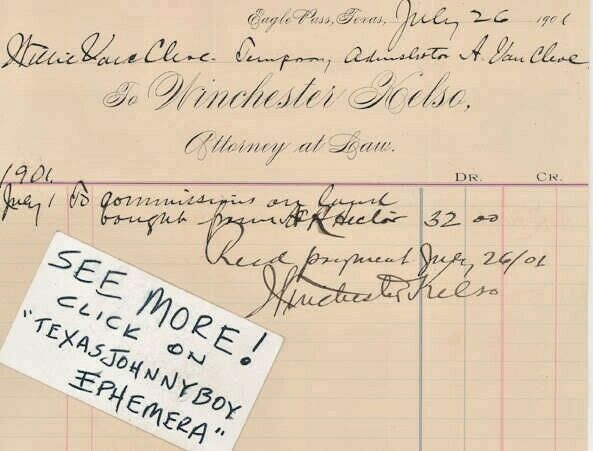 Eagle Pass, Texas, July 26 1901
Willie Van Cleve. Temporary Administrator A. Van Cleve
To Winchester Kelso,
Attorney at Law.
1901. DR. CR.
July 1 To commissions on land
bought from A R Hector 32 00
Recd payment July 26/01
Winchester Kelso
SEE MORE!
CLICK ON
"TEXASJOHNNYBOY
EPHEMERA"